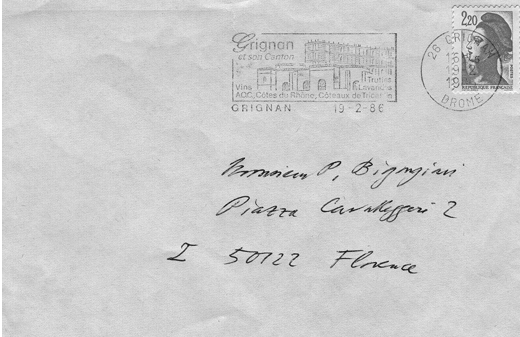 Grignan
et son Canton
Truffes
Vins & Lavandes
AOC, Côtes du Rhône, Côteaux de Tricastin
GRIGNAN 19-2-86
2,20
26 GRIGNAN
DROME
REPUBLIQUE FRANCAISE
Monsieur P. Bigongiari
Piazza Cavalleggeri 2
I 50122 Florence